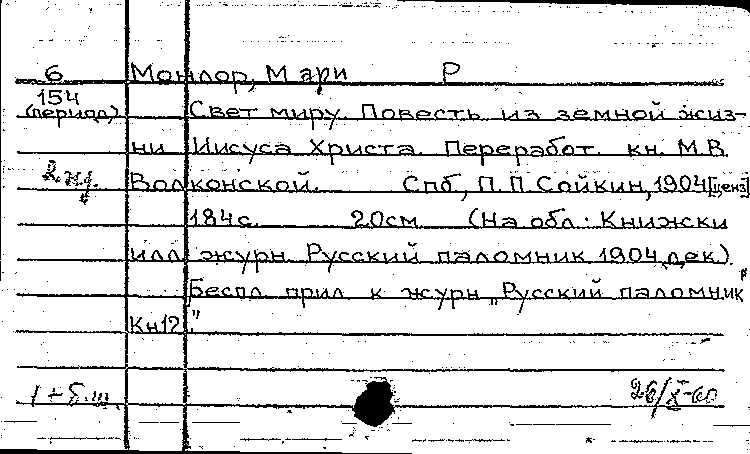 6 Монлор, Мари Р
154
(период) Свет миру. Повесть из земной жиз-
ни Иисуса Христа. Переработ. кн. М.В.
2 эк. Волконской. Спб, П.П. Сойкин, 1904 [ценз]
184с. 20см (На обл.: Книжки
илл. журн. Русский паломник 1904, дек.)
Беспл. прил. к журн. „Русский паломник
Кн12 "
1 + б.ш. 26/X-60